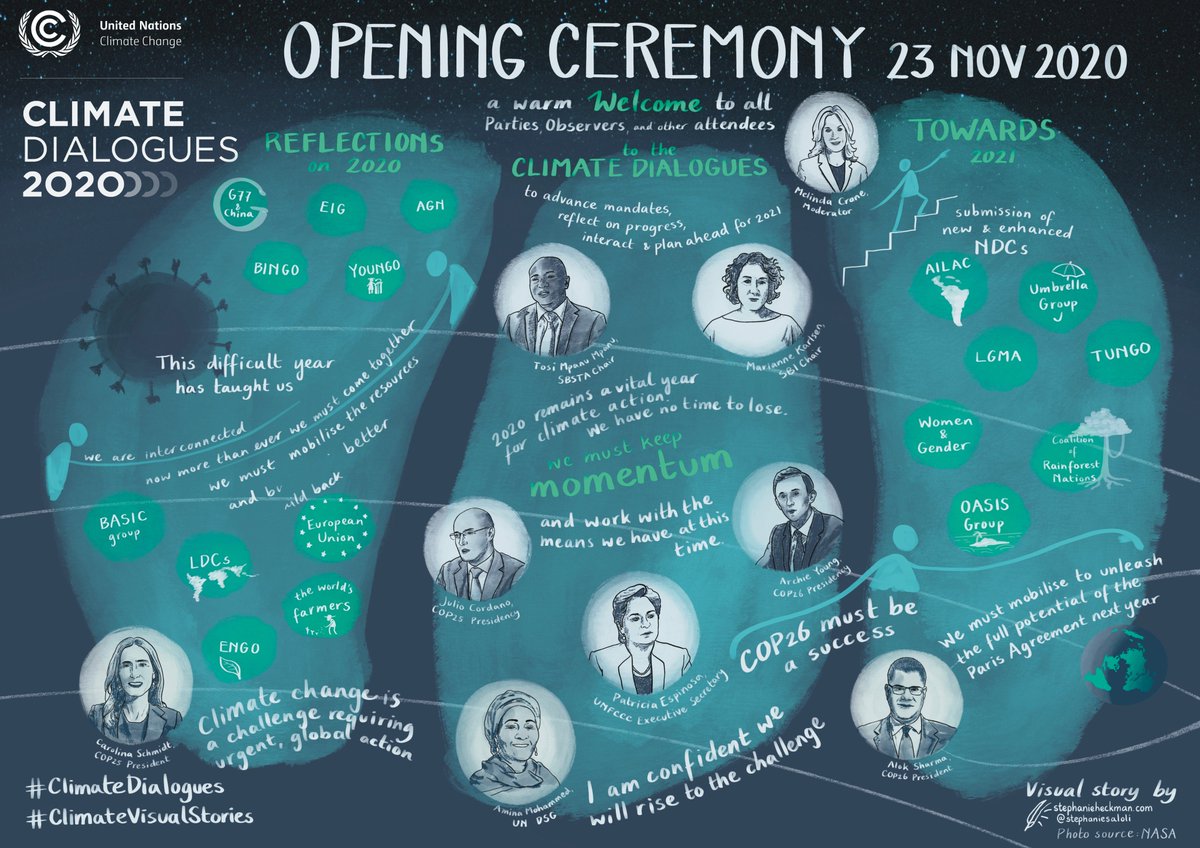 United Nations
Climate Change
OPENING CEREMONY 23 NOV 2020
CLIMATE
DIALOGUES
2020
a warm Welcome to all
Parties, Observers, and other attendees
to the
CLIMATE DIALOGUES
to advance mandates,
reflect on progress,
interact & plan ahead for 2021
Melinda Crane,
Moderator
REFLECTIONS
on 2020
G77
&
China
EIG
AGN
BINGO
YOUNGO
This difficult year
has taught us
we are interconnected
now more than ever we must come together
we must mobilise the resources
and build back better
BASIC
group
European
Union
LDCs
the world's
farmers
ENGO
Carolina Schmidt,
COP25 President
Climate change is
a challenge requiring
urgent, global action
Tosi Mpanu Mpanu,
SBSTA Chair
Marianne Karlsen,
SBI Chair
2020 remains a vital year
for climate action
we have no time to lose.
we must keep
momentum
and work with the
means we have at this
time.
Julio Cordano,
COP25 Presidency
Archie Young,
COP26 Presidency
Patricia Espinosa,
UNFCCC Executive Secretary
Amina Mohammed,
UN DSG
I am confident we
will rise to the challenge
TOWARDS
2021
submission of
new & enhanced
NDCs
AILAC
Umbrella
Group
LGMA
TUNGO
Women
&
Gender
Coalition
of
Rainforest
Nations
OASIS
Group
COP26 must be
a success
we must mobilise to unleash
the full potential of the
Paris Agreement next year
Alok Sharma,
COP26 President
#ClimateDialogues
#ClimateVisualStories
Visual story by
stephanieheckman.com
@stephaniesaloli
Photo source: NASA